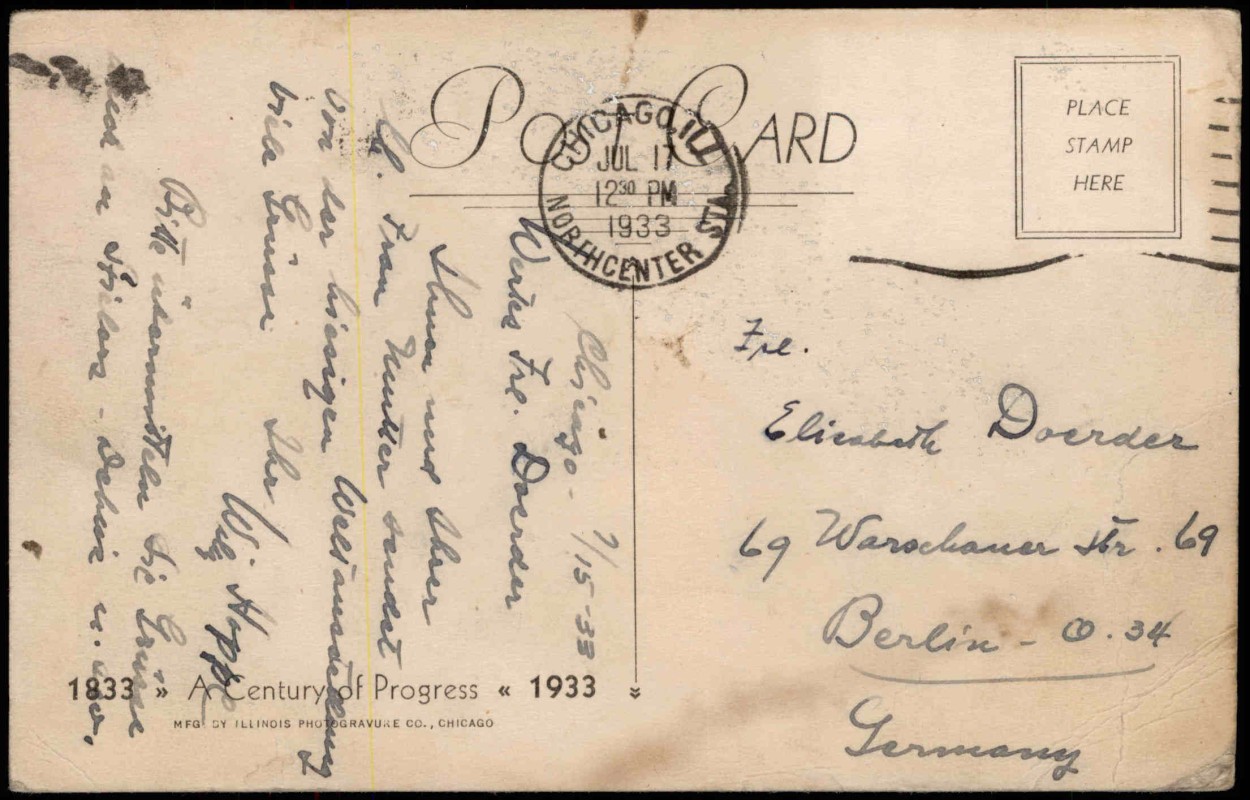 Post Card
PLACE
STAMP
HERE
CHICAGO, ILL.
JUL 17
12 30 PM
1933
NORTHCENTER STA.
Chicago - 7/15-33
Wertes Frl. Doerder
Ihnen und Ihrer
Frau Mutter sendet
von der hiesigen Weltausstellung
viele Grüsse Ihr
Willy Hoppe
Bitte übermitteln Sie Grüsse
und an
Frl.
Elisabeth Doerder
69 Warschauer Str. 69
Berlin - O. 34
Germany
1833 » A Century of Progress « 1933
MFG. BY ILLINOIS PHOTOGRAVURE CO., CHICAGO